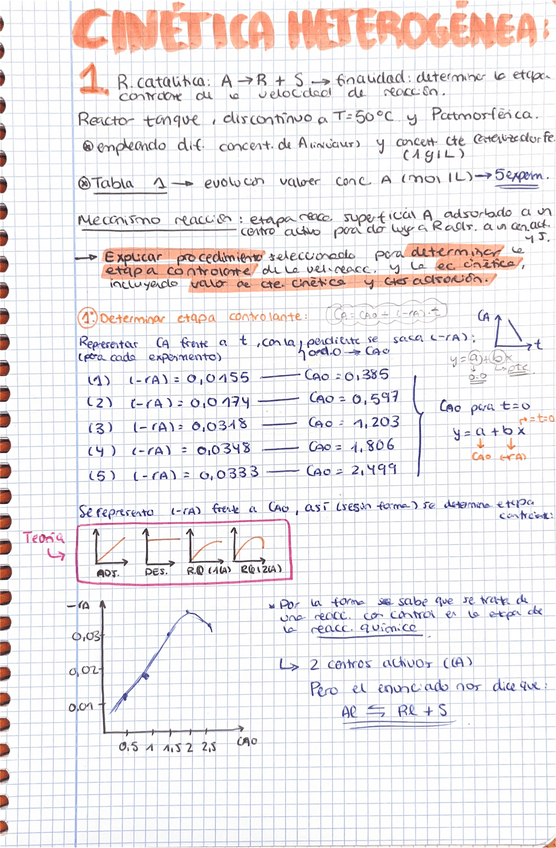 CINÉTICA HETEROGÉNEA:
1. R. catalítica: A → R + S → finalidad: determinar la etapa
controlante de la velocidad de reacción.
Reactor tanque, discontinuo a T=50°C y Patmosférica.
empleando dif. concent. de A iniciales y concent cte
(1g/L)
Tabla 1 → evolución valores conc. A (mol/L) → 5 experm.
Mecanismo reacción: etapa reacc. superficial A adsorbido a un
centro activo para dar lugar a R ads. a un cent. act.
y S.
→ Explicar procedimiento seleccionado para determinar la
etapa controlante de la vel. reacc. y la ec cinética,
incluyendo valor de cte. cinética y ctes adsorción.
1: Determinar etapa controlante: CA = CAO + (-rA)·t
Representar CA frente a t, con la pendiente se saca (-rA):
(para cada experimento) → CAO
CA
t
y = a + bx
0.0
(1) (-rA) = 0,0155 — CAO = 0,385
(2) (-rA) = 0,0174 — CAO = 0,597
(3) (-rA) = 0,0318 — CAO = 1,203
(4) (-rA) = 0,0348 — CAO = 1,806
(5) (-rA) = 0,0333 — CAO = 2,499
CAO para t=0
y = a + bx
CAO (-rA)
Se representa (-rA) frente a CAO, así (según forma) se determina etapa
controlante:
Teoría
ADS. DES. RQ (1(A) RQ (2(A)
-rA
0,03
0,02
0,01
0,5 1 1,5 2 2,5 CAO
* Por la forma se sabe que se trata de
una reacc. con control en la etapa de
la reacc. química
↳ 2 centros activos (CA)
Pero el enunciado nos dice que:
Al ⇆ Rl + S